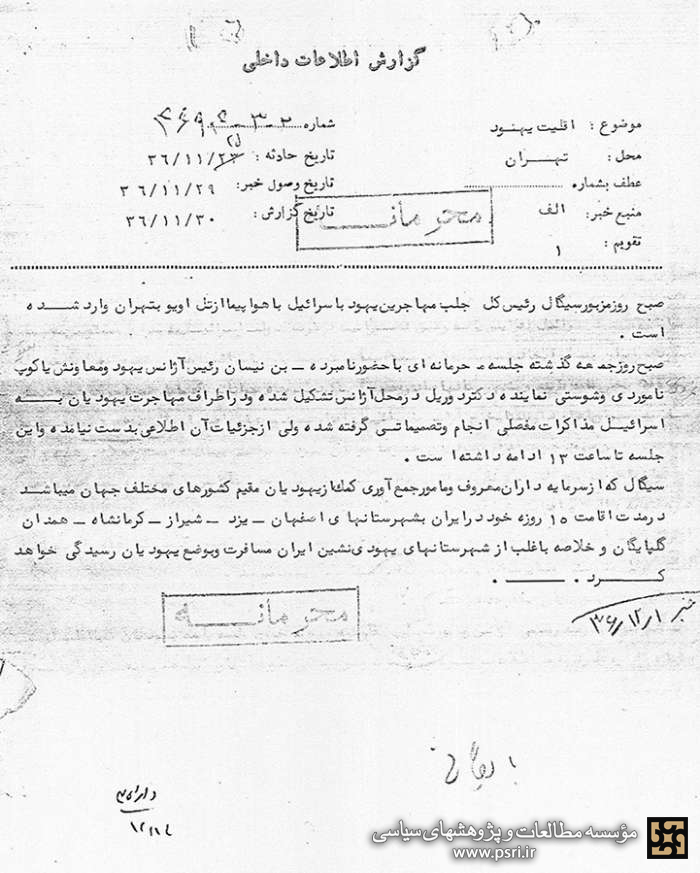 گزارش اطلاعات داخلی
موضوع : اقلیت یهود
شماره
محل : تهران
تاریخ حادثه : ۳۶/۱۱/۲۳
عطف بشماره
تاریخ وصول خبر: ۳۶/۱۱/۲۹
منبع خبر: الف
تاریخ گزارش: ۳۶/۱۱/۳۰
محرمانه
تقویم : ۱
صبح روز مزبور سیگال رئیس کل جلب مهاجرین یهود با سرائیل با هواپیما از تل اویو بتهران وارد شده
است .
صبح روز جمعه گذشته جلسه محرمانه ای با حضور نامبرده - بن نیسان رئیس آژانس یهود و معاونش یاکوپ
ناموردی وشوستی نماینده دکتر دوریل در محل آژانس تشکیل شده و در اطراف مهاجرت یهودیان به
اسرائیل مذاکرات مفصلی انجام و تصمیماتی گرفته شده ولی از جزئیات آن اطلاعی بدست نیامده و این
جلسه تا ساعت ۱۳ ادامه داشته است .
سیگال که از سرمایه داران معروف و مامور جمع آوری کمک از یهودیان مقیم کشورهای مختلف جهان میباشد
در مدت اقامت ۱۵ روزه خود در ایران بشهرستانهای اصفهان - یزد - شیراز - کرمانشاه - همدان
گلپایگان و خلاصه باغلب از شهرستانهای یهودی نشین ایران مسافرت و بوضع یهودیان رسیدگی خواهد
کرد .
محرمانه
۳۶/۱۲/۱
۱۲/۱۴
مؤسسه مطالعات و پژوهشهای سیاسی
www.psri.ir